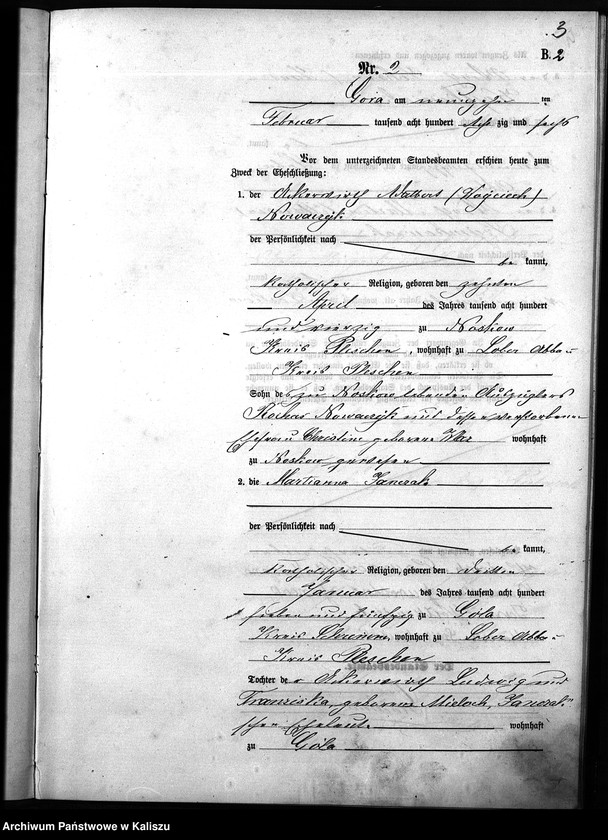 3
B. 2
Nr. 2
Gora am neunzehn ten
Februar tausend acht hundert acht zig und sechs
Vor dem unterzeichneten Standesbeamten erschien heute zum
Zweck der Eheschließung:
1. der Ackerwirth Adalbert (Wojciech)
Nowaczyk
der Persönlichkeit nach
be kannt,
katholischer Religion, geboren den zehnten
April des Jahres tausend acht hundert
und vierzig zu Noskow
Kreis Pleschen, wohnhaft zu
Kreis Pleschen
Sohn des zu Noskow lebenden Auszüglers
Rochus Nowaczyk und dessen verstorbenen
Ehefrau Christine geborene wohnhaft
zu Noskow gewesen
2. die Marianna Janczak
der Persönlichkeit nach
be kannt,
katholischer Religion, geboren den dritten
Januar des Jahres tausend acht hundert
sieben und fünfzig zu Góla
Kreis Schrimm, wohnhaft zu
Kreis Pleschen
Tochter der Ackerwirth Ludwig und
Franziska, geborene Mieloch, Janczak"
schen Eheleute wohnhaft
zu Góla
Archiwum Państwowe w Kaliszu